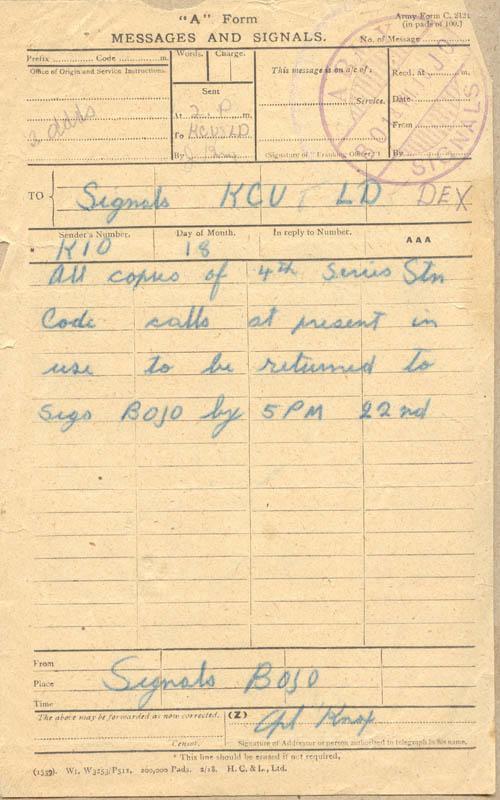 "A" Form
MESSAGES AND SIGNALS.
Army Form C. 2121
(in pads of 100.)
No. of Message
Prefix Code m.
Office of Origin and Service Instructions.
2 adds
Words. Charge.
Sent
At 2 P m.
To KCUSLD
By
This message is on a/c of:
Service.
(Signature of "Franking Officer")
Recd. at m.
Date
From
By
SIGNALS
TO Signals KCU LD DEX
Sender's Number. Day of Month. In reply to Number. AAA
* K10 18
All copies of 4th Series Stn
Code calls at present in
use to be returned to
Sigs BOJO by 5PM 22nd
From
Place Signals BOJO
Time
The above may be forwarded as now corrected. (Z) Cpl Knox
Censor. Signature of Addressor or person authorised to telegraph in his name.
* This line should be erased if not required.
(1539). Wt. W3253/P511. 200,000 Pads. 2/18. H. C. & L., Ltd.